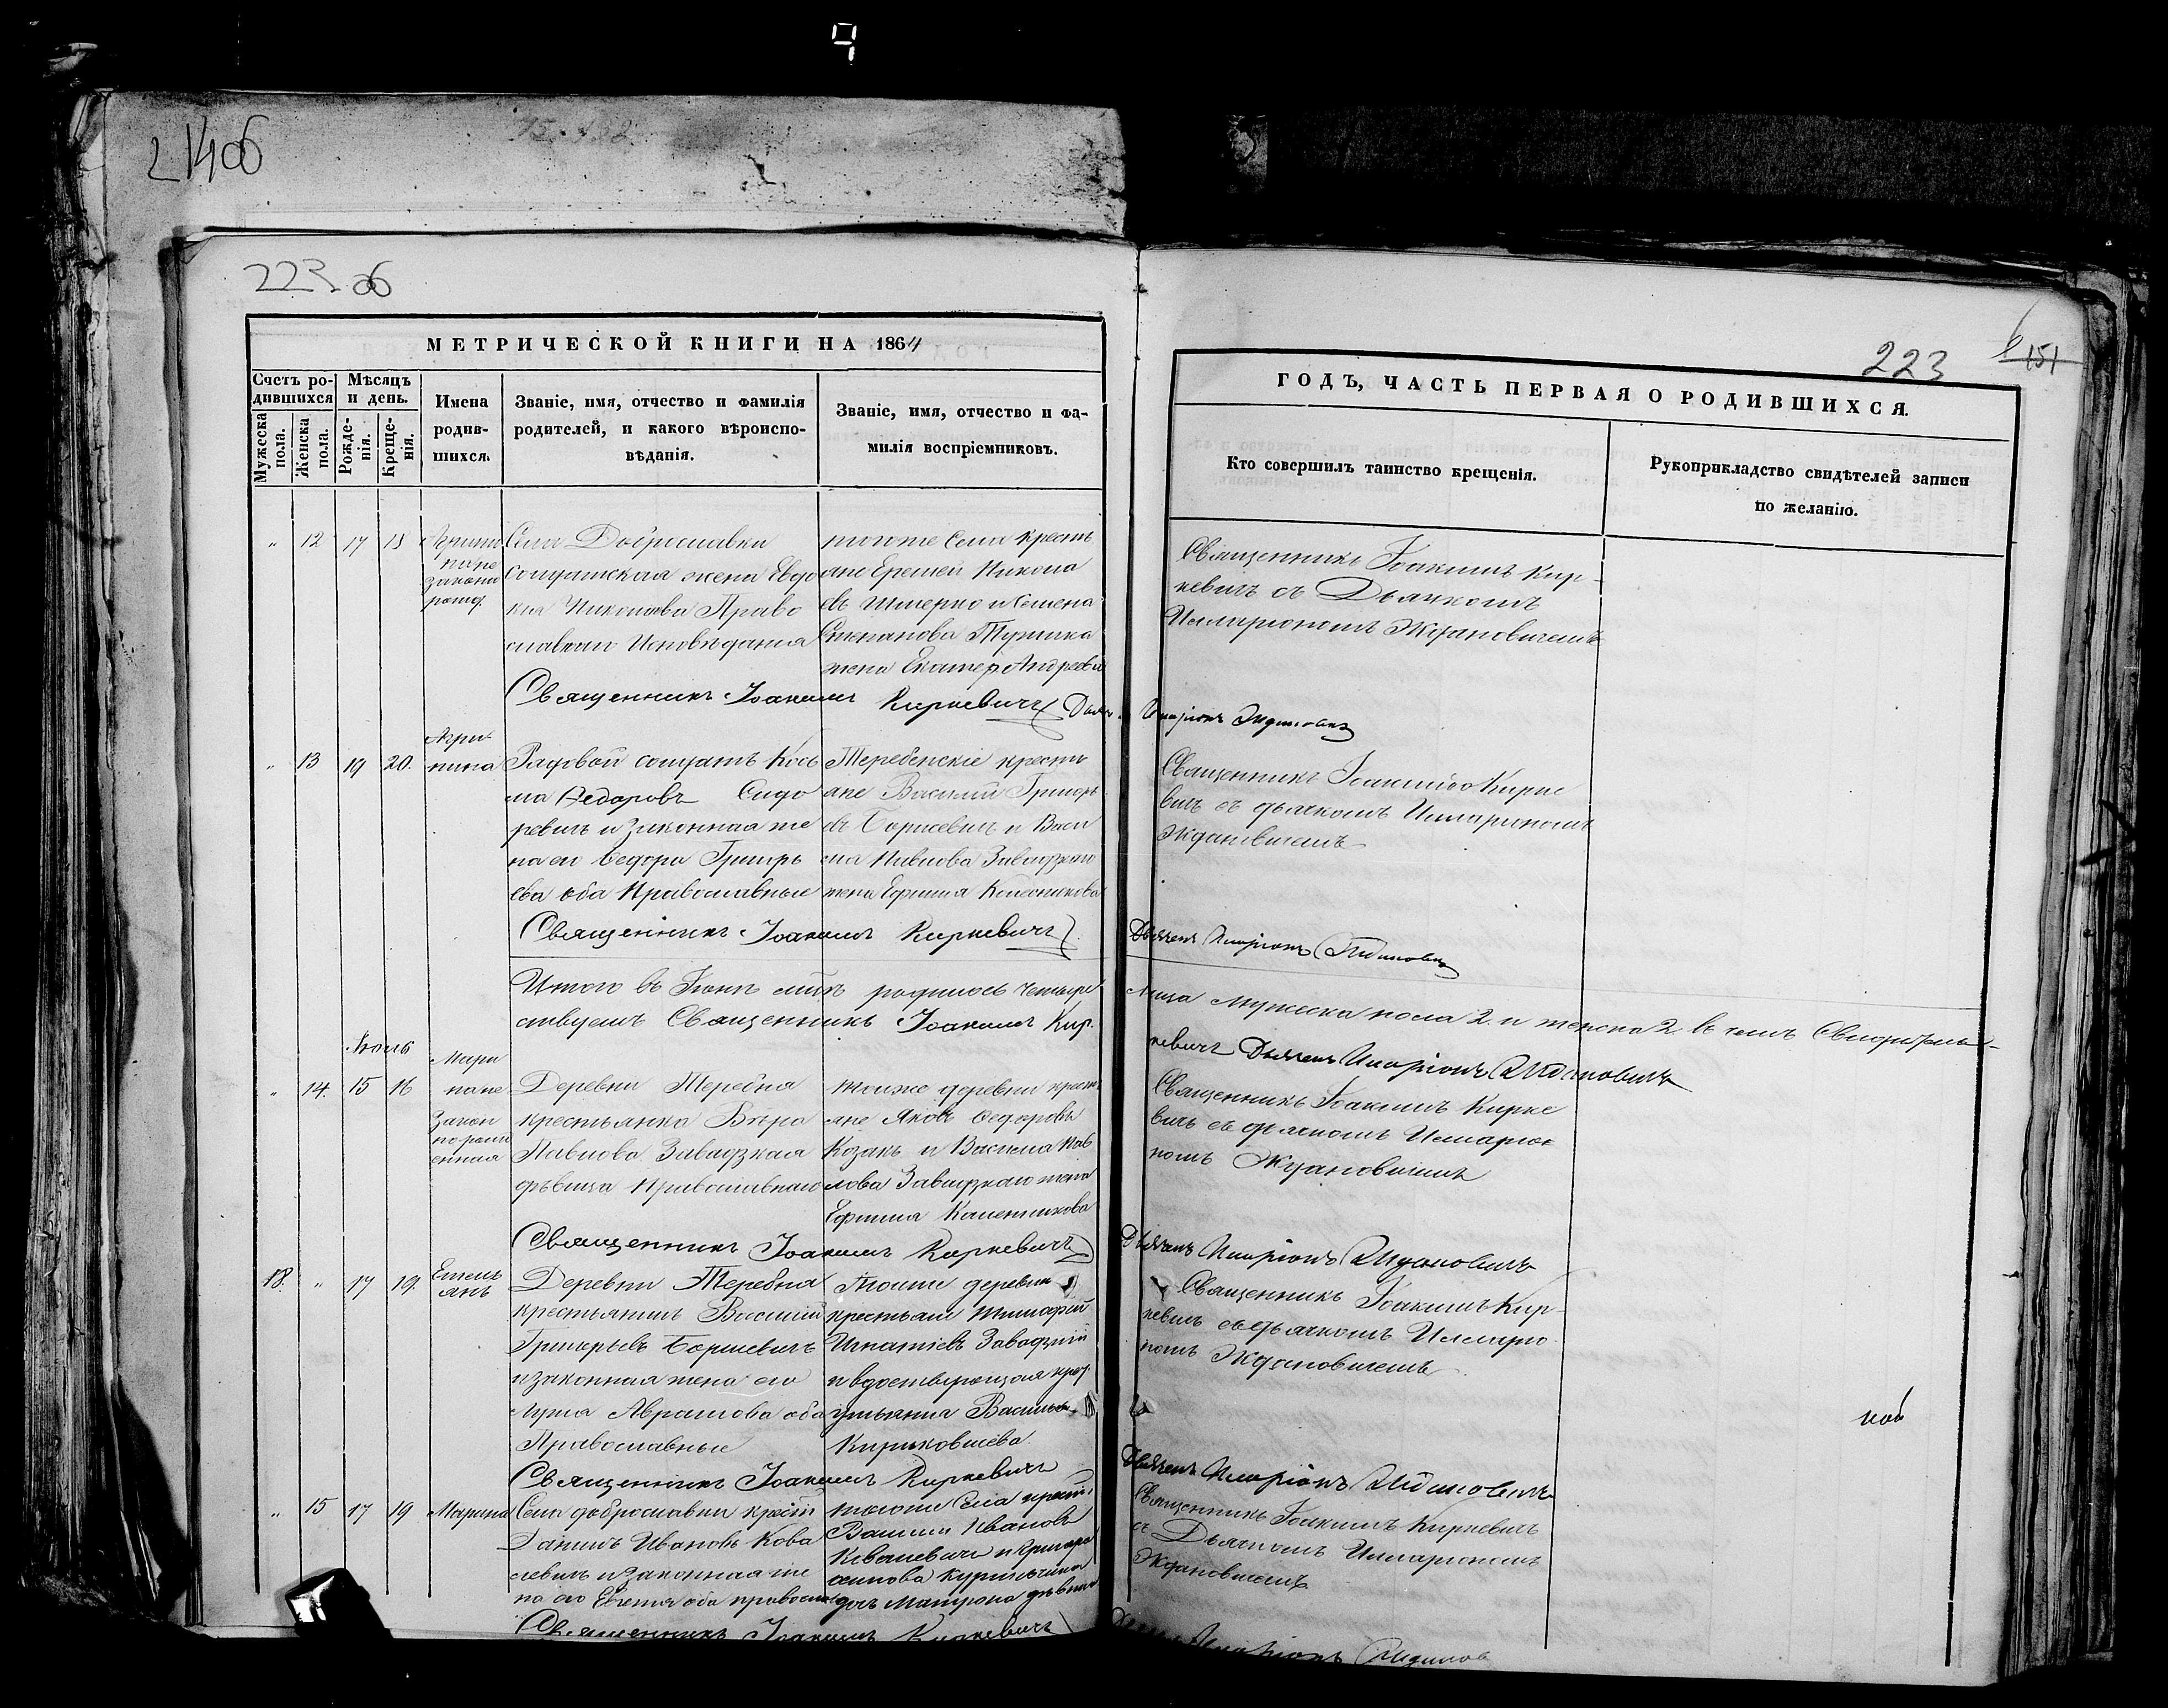 9
2 140б
223 об
МЕТРИЧЕСКОЙ КНИГИ НА 1864
Счетъ ро-
дившихся
Мужеска
пола.
Женска
пола.
Мѣсяцъ
и день.
Рожде-
нія.
Креще-
нія.
Имена
родив-
шихся.
Званіе, имя, отчество и фамилія
родителей, и какого вѣроиспо-
вѣданія.
Званіе, имя, отчество и фа-
милія воспріемниковъ.
„ 12 17 18
Села Доброславки
солдатская жена Евдо
кія Николаева Право
славнаго Исповѣданія
тогоже Села кресть
яне Еремей Никола
евъ Шмерко и Семена
Степанова Туричка
жена Екатер. Андреева
Священникъ Іоакимъ Киркевичъ
„ 13 19 20.
Агри-
пина
Рядовой солдатъ Кось
ма Ѳедоровъ Сидо
ревичъ и Законная же
на его Ѳедора Григорь
ева оба Православные
Теребенскіе кресть
яне Василий Григорь
евъ Борисевичъ и Васи
лія Павлова Завадзкаго
жена Ефимія
Священникъ Іоакимъ Киркевичъ
Итого въ Іюнѣ мцѣ родилось четыре
ствуемъ Священникъ Іоакимъ Кир-
Іюль
„ 14. 15 16
Мари
на не
Закон
норожд
енная
Деревни Теребня
крестьянка Вѣра
Павлова Завадзкая
дѣвица Православнаго
тоиже деревни крест
яне Яковъ Ѳедоровъ
Козакъ и Василія Пав
лова Завадзкаго жена
Ефимія
Священникъ Іоакимъ Киркевичъ
18. „ 17 19.
Емель
янъ
Деревни Теребня
крестьянинъ Василий
Григорьевъ Борисевичъ
и законная жена его
Аврамова оба
Православные
Тоиже деревни
крестьяне Тимофей
Игнатіевъ Завадзкій
Священникъ Іоакимъ Киркевичъ
„ 15 17 19
Марина
Села доброславки крест
Данилъ Ивановъ Кова
левичъ и законная же
на его Евгенія оба православ
тогоже Села крест
Иванов
Ковалевичъ и Григор
дочь Матрона дѣвица
Священникъ Іоакимъ Киркевичъ
223
151
ГОДЪ, ЧАСТЬ ПЕРВАЯ О РОДИВШИХСЯ.
Кто совершилъ таинство крещенія.
Рукоприкладство свидѣтелей записи
по желанію.
Священникъ Іоакимъ Кир-
кевичъ съ Дьячкомъ
Илларіономъ Ждановичемъ
Священникъ Іоакимъ Кирке
вичъ съ дьячкомъ Илларіономъ
Ждановичемъ
Дьячекъ Иларіонъ Ждановичъ
лица мужеска пола 2. и женска 2. въ чемъ Свидѣтель-
кевичъ Дьячекъ Иларіонъ Ждановичъ
Священникъ Іоакимъ Кирке
вичъ съ дьячкомъ Илларіо
номъ Ждановичемъ
Дьячекъ Иларіонъ Ждановичъ
Священникъ Іоакимъ Кир-
кевичъ съ дьячкомъ Илларіо
номъ Ждановичемъ
Дьячекъ Иларіонъ Ждановичъ
Священникъ Іоакимъ Киркевичъ
съ Дьячкомъ Илларіономъ
Ждановичемъ